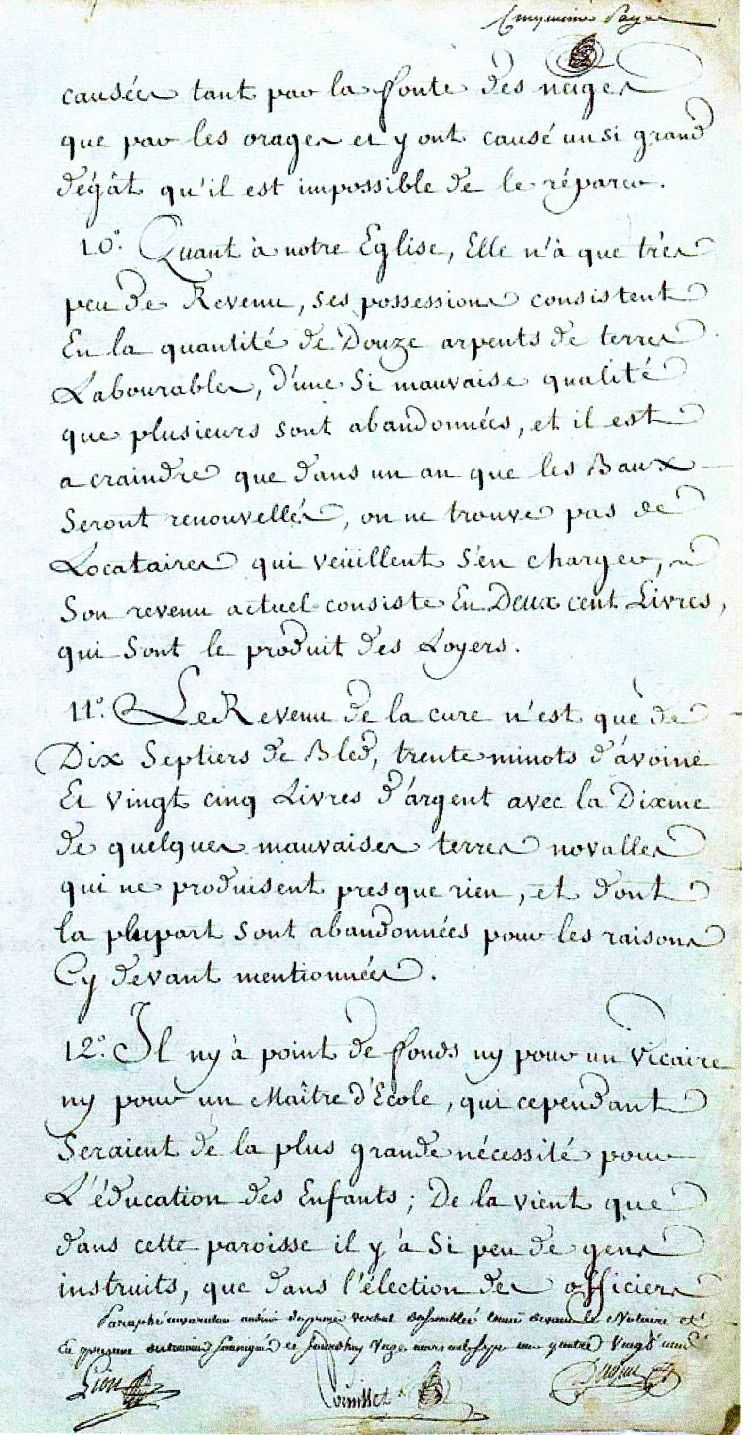 Cinquieme Page
causées tant par la fonte des neiges
que par les orages et y ont causé un si grand
dégât qu'il est impossible de le réparer.
10°. Quant à notre Eglise, Elle n'à que très
peu de Revenu, ses possessions consistent
En la quantité de Douze arpents de terres
Labourables, d'une si mauvaise qualité
que plusieurs sont abandonnées, et il est
a craindre que dans un an que les Baux
seront renouvellés, on ne trouve pas de
Locataires qui veüillent s'en charger,
Son revenu actuel consiste En Deux cent Livres,
qui sont le produit des Loyers.
11°. Le Revenu de la cure n'est que de
Dix Septiers de Bled, trente minots d'avoine
Et vingt cinq Livres d'argent avec la Dixme
de quelques mauvaises terres novalles
qui ne produisent presque rien, et dont
la plupart sont abandonnées pour les raisons
Cy devant mentionnées.
12°. Il ny à point de fonds ny pour un Vicaire
ny pour un Maître d'Ecole, qui cependant
Seraient de la plus grande nécessité pour
L'éducation des Enfants ; De la vient que
dans cette paroisse il y à Si peu de gens
instruits, que dans l'élection des officiers
Paraphé au désir du procès verbal d'assemblée devant le Notaire
En présence ce mars mil sept cent quatre Vingt neuf